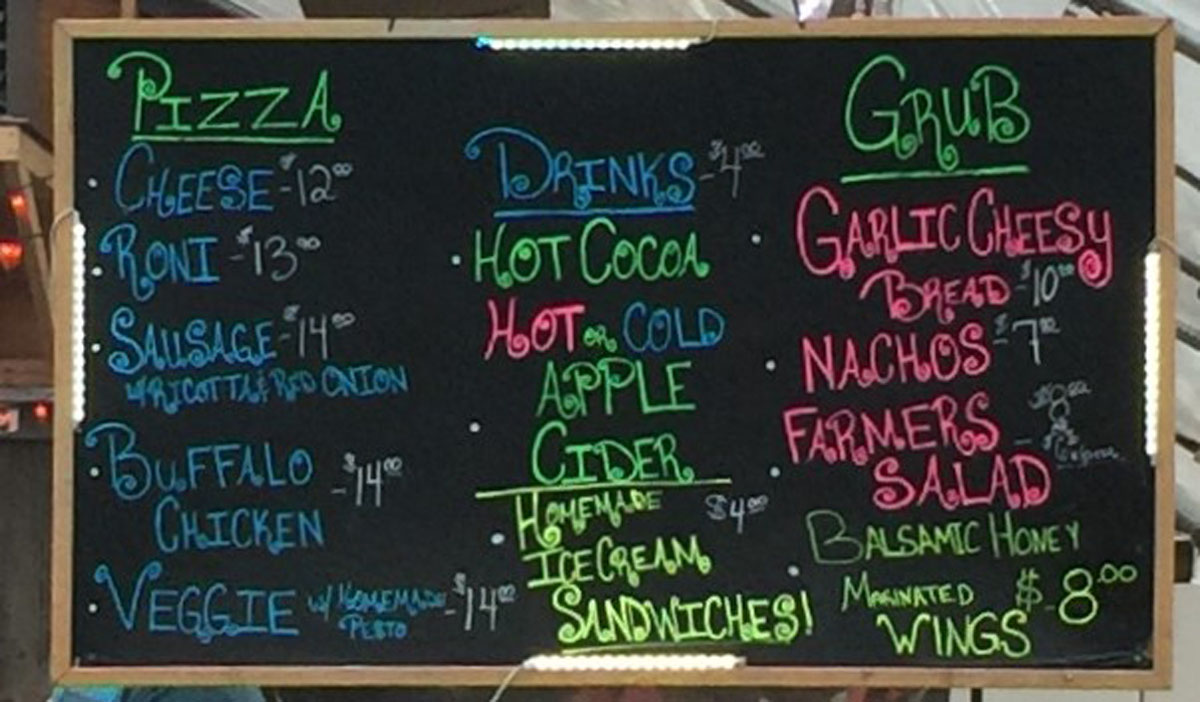 PIZZA
CHEESE - $12.00
RONI - $13.00
SAUSAGE - $14.00
W/RICOTTA & RED ONION
BUFFALO - $14.00
CHICKEN
VEGGIE W/ HOMEMADE - $14.00
PESTO
DRINKS - $4.00
HOT COCOA
HOT OR COLD
APPLE
CIDER
HOMEMADE $4.00
ICE CREAM
SANDWICHES!
GRUB
GARLIC CHEESY
BREAD - $10.00
NACHOS - $7.00
FARMERS - $8.00
SALAD
BALSAMIC HONEY
MARINATED $8.00
WINGS